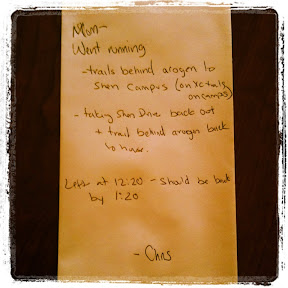 Mom-
Went running
- trails behind arogen to
Shen Campus (on xc trails
on campus)
- taking Shen Drive back out
+ trail behind arogen back
to house.
Left at 12:20 - should be back
by 1:20
- Chris